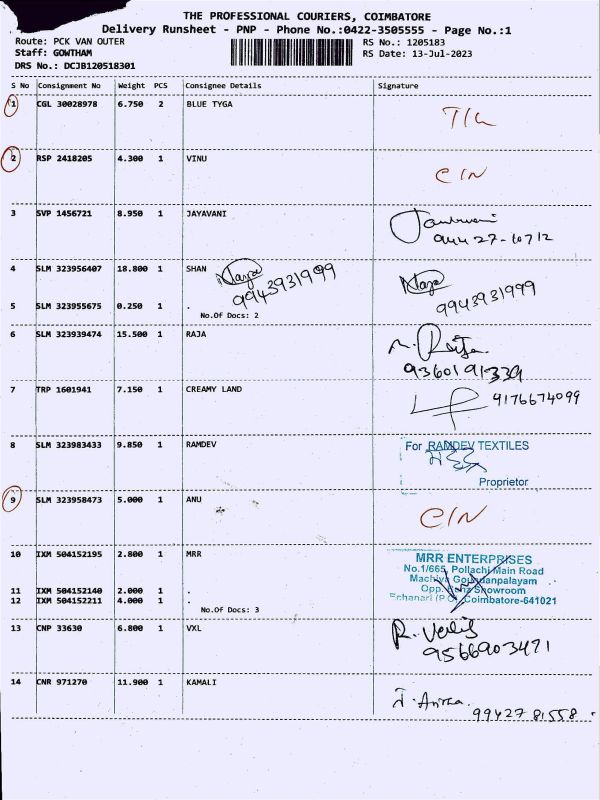 THE PROFESSIONAL COURIERS, COIMBATORE
Delivery Runsheet - PNP - Phone No.:0422-3505555 - Page No.:1
Route: PCK VAN OUTER
RS No.: 1205183
Staff: GOWTHAM
RS Date: 13-Jul-2023
DRS No.: DCJB120518301
S No Consignment No Weight PCS Consignee Details Signature
1 CGL 30028978 6.750 2 BLUE TYGA
2 RSP 2418205 4.300 1 VINU
C/N
3 SVP 1456721 8.950 1 JAYAVANI
4 SLM 323956407 18.800 1 SHAN
9943931999
9943931999
5 SLM 323955675 0.250 1 .
No.Of Docs: 2
6 SLM 323939474 15.500 1 RAJA
9360191339
7 TRP 1601941 7.150 1 CREAMY LAND
9176674099
8 SLM 323983433 9.850 1 RAMDEV
For RAMDEV TEXTILES
Proprietor
9 SLM 323958473 5.000 1 ANU
C/N
10 IXM 504152195 2.800 1 MRR
MRR ENTERPRISES
No.1/665, Pollachi Main Road
Machiya Goundanpalayam
Opp. Showroom
Echanari (P.O) Coimbatore-641021
11 IXM 504152140 2.000 1 .
12 IXM 504152211 4.000 1 .
No.Of Docs: 3
13 CNP 33630 6.800 1 VXL
9566903471
14 CNR 971270 11.900 1 KAMALI
9942781558